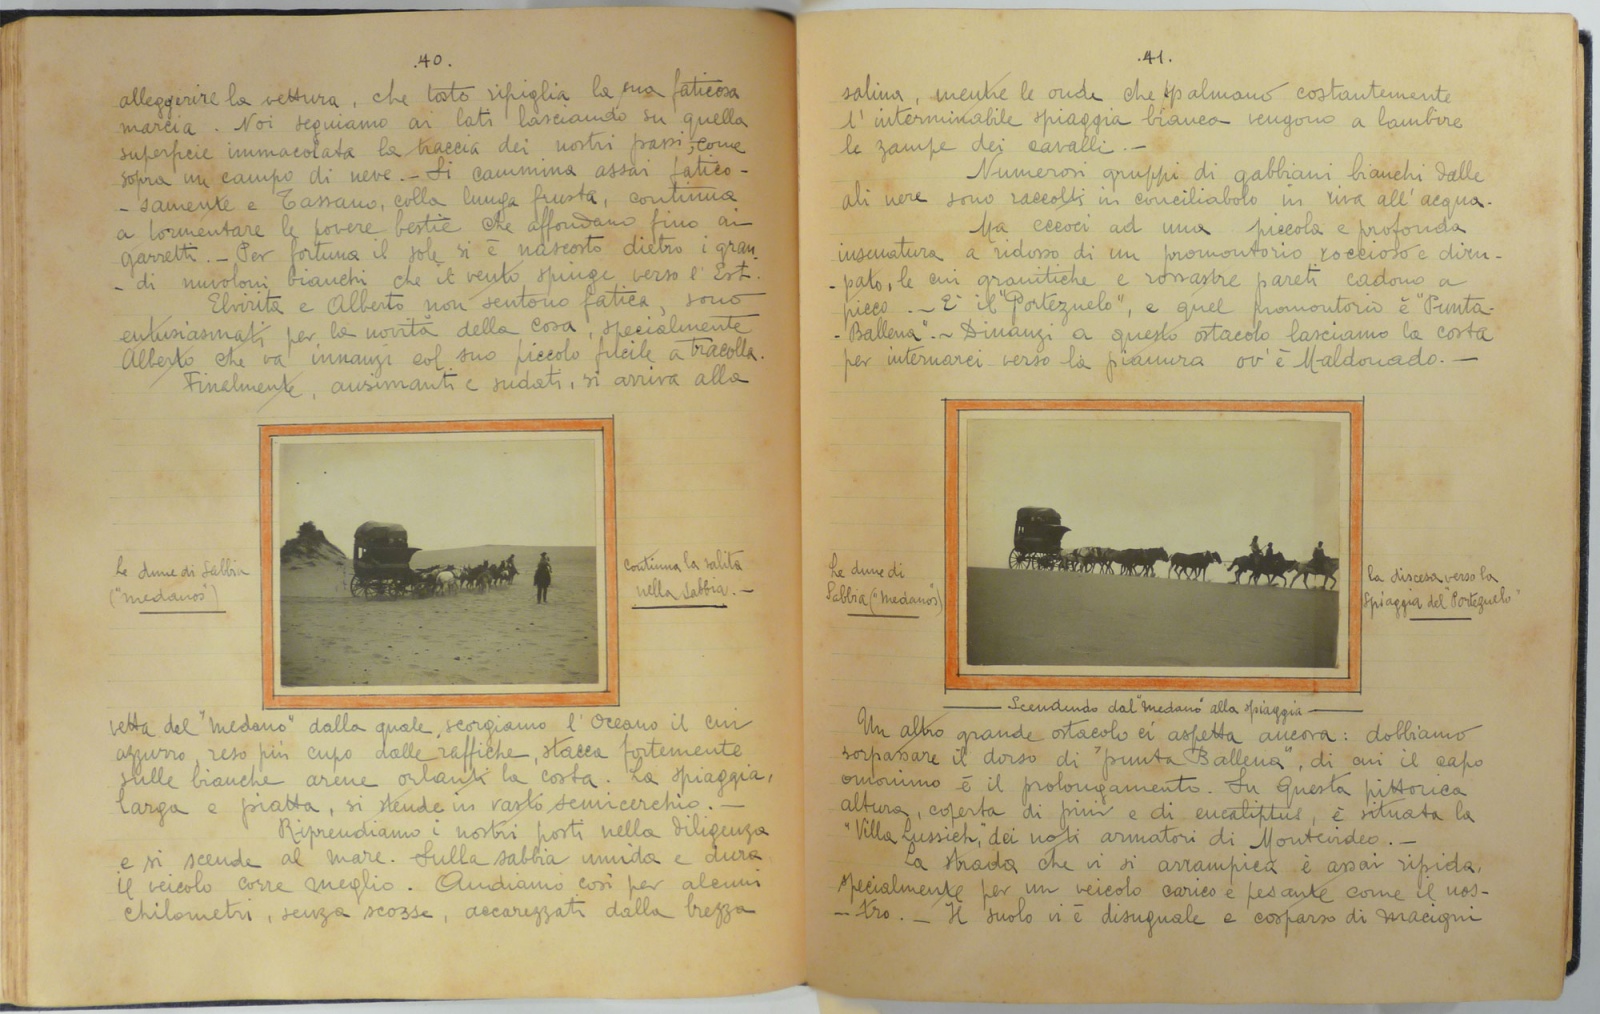 .40.
alleggerire la vettura, che tosto ripiglia la sua faticosa
marcia. Noi seguiamo ai lati lasciando su quella
superficie immacolata la traccia dei nostri passi, come
sopra un campo di neve. – Si cammina assai fatico-
- samente e Tassano, colla lunga frusta, continua
a tormentare le povere bestie che affondano fino ai
garretti. – Per fortuna il sole si è nascosto dietro i gran-
- di nuvoloni bianchi che il vento spinge verso l'Est.
Elvirita e Alberto non sentono fatica, sono
entusiasmati per la novità della cosa, specialmente
Alberto che va innanzi col suo piccolo fucile a tracolla.
Finalmente, ansimanti e sudati, si arriva alla
Le dune di Sabbia
("medanos")
continua la salita
nella sabbia. –
vetta del "medano" dalla quale scorgiamo l'Oceano il cui
azzurro, reso più cupo dalle raffiche, stacca fortemente
sulle bianche arene orlanti la costa. La spiaggia,
larga e piatta, si stende in vasto semicerchio. –
Riprendiamo i nostri posti nella diligenza
e si scende al mare. Sulla sabbia umida e dura
il veicolo corre meglio. Andiamo così per alcuni
chilometri, senza scosse, accarezzati dalla brezza
.41.
salina, mentre le onde che spalmano costantemente
l'interminabile spiaggia bianca vengono a lambire
le zampe dei cavalli. –
Numerosi gruppi di gabbiani bianchi dalle
ali nere sono raccolti in conciliabolo in riva all'acqua.
Ma eccoci ad una piccola e profonda
insenatura a ridosso di un promontorio roccioso e diru-
- pato, le cui granitiche e rossastre pareti cadono a
picco. – E' il "Portezuelo", e quel promontorio è "Punta-
- Ballena". ~ Dinanzi a questo ostacolo lasciamo la costa
per internarci verso la pianura ov'è Maldonado. –
Le dune di
Sabbia ("medanos")
la discesa verso la
spiaggia del "Portezuelo"
Scendendo dal "medano" alla spiaggia
Un altro grande ostacolo ci aspetta ancora: dobbiamo
sorpassare il dorso di "punta Ballena", di cui il capo
omonimo è il prolungamento. Su questa pittorica
altura, coperta di pini e di eucaliptus, è situata la
"Villa Lussich", dei noti armatori di Montevideo. –
La strada che vi si arrampica è assai ripida,
specialmente per un veicolo carico e pesante come il nos-
- tro. – Il suolo vi è disuguale e cosparso di macigni